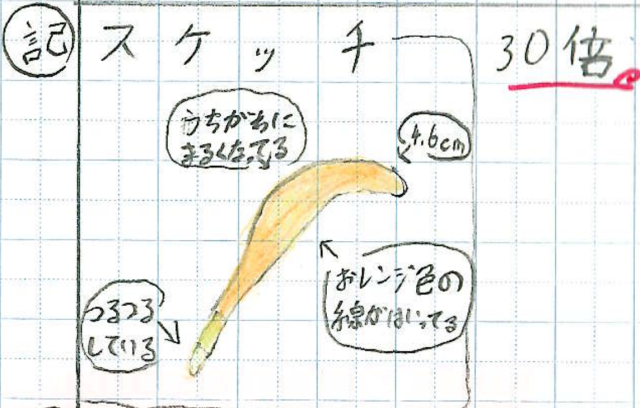 記 スケッチ 30倍
うちがわに
まるくなってる
4.6cm
おレンジ色の
線がはいってる
つるつる
している